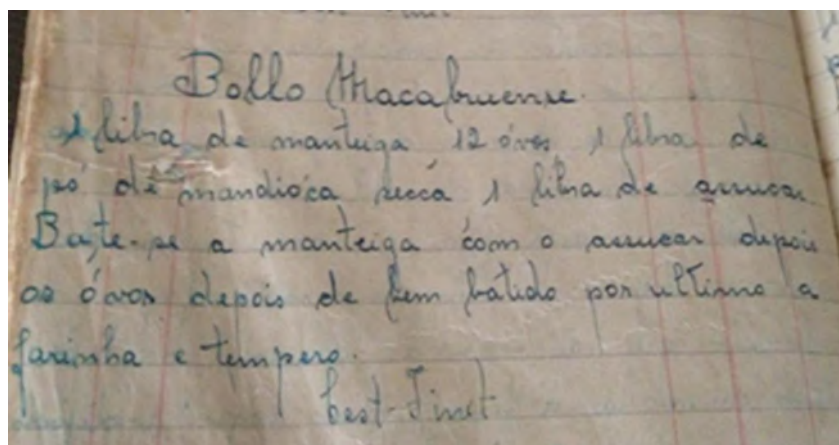 Bollo Macabuense.
1 libra de manteiga 12 óvos 1 libra de
pó de mandióca secca 1 libra de assucar
Bate-se a manteiga com o assucar depois
os óvos depois de bem batido por ultimo a
farinha e tempero.